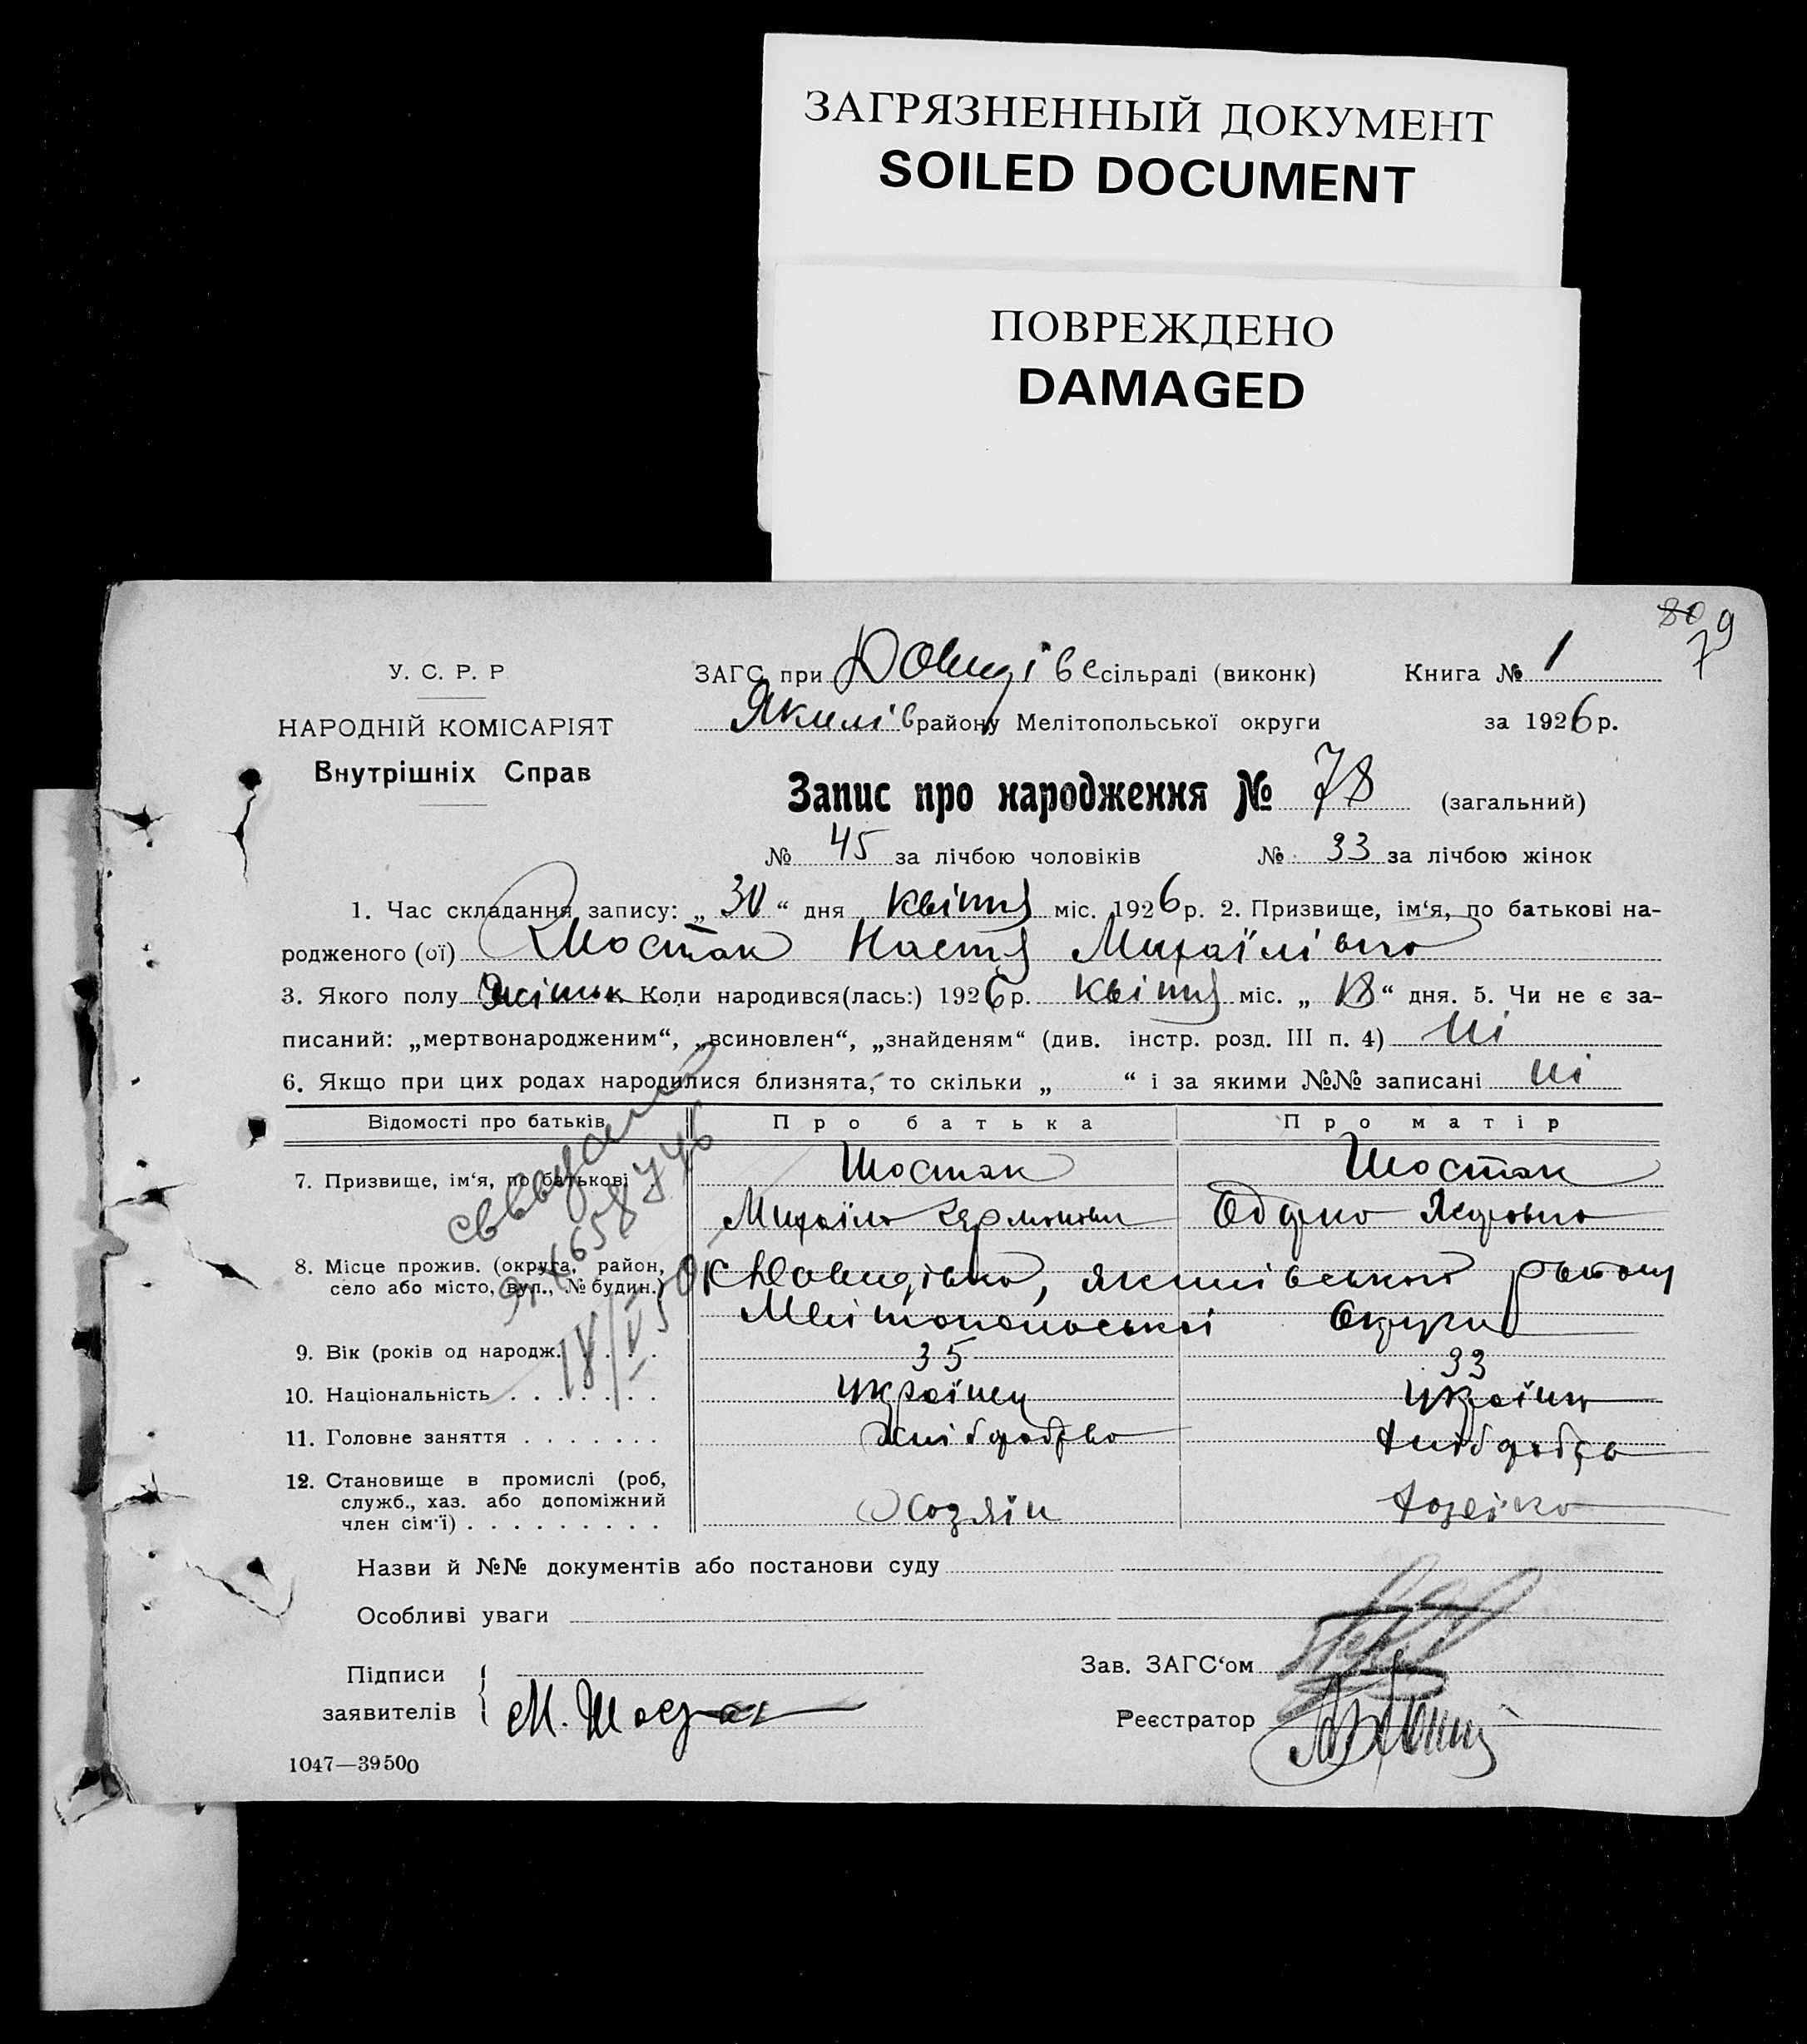 ЗАГРЯЗНЕННЫЙ ДОКУМЕНТ
SOILED DOCUMENT
ПОВРЕЖДЕНО
DAMAGED
80 79
У. С. Р. Р
НАРОДНІЙ КОМІСАРІЯТ
Внутрішніх Справ
ЗАГС при Давидівс сільраді (виконк) Книга № 1
Якимів району Мелітопольської округи за 1926 р.
Запис про народження № 78 (загальний)
№ 45 за лічбою чоловіків № 33 за лічбою жінок
1. Час складання запису: „ 30 “ дня квітня міс. 1926 р. 2. Призвище, ім‘я, по батькові на-
родженого (ої) Шостак Настя Михаїлівно
3. Якого полу Жінок Коли народився(лась:) 1926 р. квітня міс. „ 18 “ дня. 5. Чи не є за-
писаний: „мертвонародженим“, „всиновлен“, „знайденям“ (див. інстр. розд. III п. 4) ні
6. Якщо при цих родах народилися близнята, то скільки „ “ і за якими №№ записані ні
Відомості про батьків Про батька Про матір
7. Призвище, ім‘я, по батькові Шостак Шостак
Михаїло
8. Місце прожив. (округа, район,
село або місто, вул., № будин.) Давидівка, якимівського району
Мелітопольської Округи
9. Вік (років од народж. . . . . 35 33
10. Національність . . . . . . . українец україн
11. Головне заняття . . . . . . .
12. Становище в промислі (роб,
служб., хаз. або допоміжний
член сім‘ї) . . . . . . . . . Хозяїн
Назви й №№ документів або постанови суду
Особливі уваги
Підписи
заявителів М. Шостак
Зав. ЗАГС‘ом
Реєстратор
1047—39500